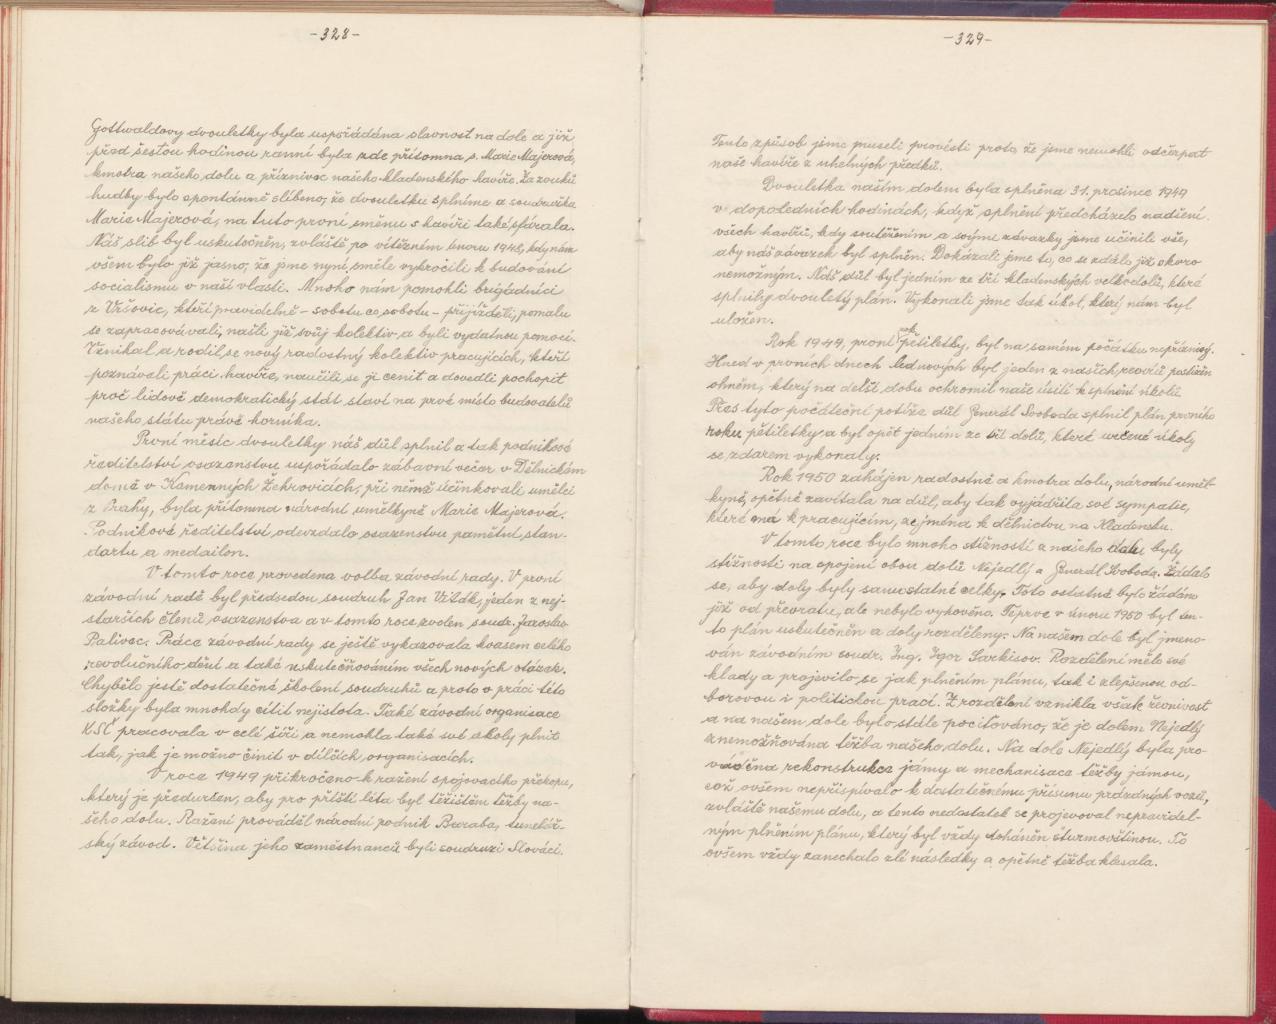 -328-
Gottwaldovy dvouletky byla uspořádána slavnost na dole a již
před šestou hodinou ranní byla zde přítomna s. Marie Majerová,
kmotra našeho dolu a příznivec našeho kladenského havíře. Za zvuků
hudby bylo spontánně slíbeno, že dvouletku splníme a soudružka
Marie Majerová, na tuto první směnu s havíři také sfárala.
Náš slib byl uskutečněn, zvláště po vítězném únoru 1948, kdy nám
všem bylo již jasno, že jme nyní směle vykročili k budování
socialismu v naší vlasti. Mnoho nám pomohli brigádníci
z Vršovic, kteří pravidelně - sobotu co sobotu - přijížděli, pomalu
se zapracovávali, našli již svůj kolektiv a byli vydatnou pomocí.
Vznikal a rodil se nový radostný kolektiv pracujících, kteří
poznávali práci havíře, naučili se ji cenit a dovedli pochopit
proč lidově demokratický stát staví na prvé místo budovatelů
našeho státu právě horníka.
První měsíc dvouletky náš důl splnil a tak podnikové
ředitelství osazenstvu uspořádalo zábavní večer v Dělnickém
domě v Kamenných Žehrovicích, při němž účinkovali umělci
z Prahy, byla přítomna národní umělkyně Marie Majerová.
Podnikové ředitelství odevzdalo osazenstvu pamětní stan-
dartu a medailon.
V tomto roce provedena volba závodní rady. V první
závodní radě byl předsedou soudruh Jan Vlšák, jeden z nej-
starších členů osazenstva a v tomto roce zvolen soudr. Jaroslav
Palivec. Práce závodní rady se ještě vykazovala kvasem celého
revolučního dění a také uskutečňováním všech nových otázek.
Chybělo jestě dostatečné školení soudruhů a proto v práci této
složky byla mnohdy cítit nejistota. Také závodní organisace
KSČ pracovala v celé šíři a nemohla také své úkoly plnit
tak, jak je možno činit v dílčích organisacích.
V roce 1949 přikročeno k ražení spojovacího překopu,
který je předurčen, aby pro příští léta byl těžištěm těžby na-
šeho dolu. Ražení prováděl národní podnik Baraba, tunelář-
ský závod. Většina jeho zaměstnanců byli soudruzi Slováci.
-329-
Tento způsob jsme museli provésti proto, že jsme nemohli odčerpat
naše havíře z uhelných předků.
Dvouletka naším dolem byla splněna 31. prosince 1949
v dopoledních hodinách, když splnění předcházelo nadšení
všech havířů, kdy soutěžením a svými závazky jsme učinili vše,
aby náš závazek byl splněn. Dokázali jsme to, co se zdálo již skoro
nemožným. Náš důl byl jedním ze tří kladenských velkodolů, které
splnily dvouletý plán. Vykonali jsme tak úkol, který nám byl
uložen.
Rok 1949, první rok pětiletky, byl na samém počátku nepříznivý.
Hned v prvních dnech lednových byl jeden z našich revírů postižen
ohněm, který na delší dobu ochromil naše úsilí k splnění úkolů.
Přes tyto počáteční potíže důl Generál Svoboda splnil plán prvního
roku pětiletky a byl opět jedním ze tří dolů, které určené úkoly
se zdarem vykonaly.
Rok 1950 zahájen radostně a kmotra dolu, národní uměl-
kyně, opětně zavítala na důl, aby tak vyjádřila své sympatie,
které má k pracujícím, zejména k dělnictvu na Kladensku.
V tomto roce bylo mnoho stížností z našeho dolu byly
stížnosti na spojení obou dolů Nejedlý a Generál Svoboda. Žádalo
se, aby doly byly samostatné celky. Toto ostatně bylo žádáno
již od převratu, ale nebylo vyhověno. Teprve v únoru 1950 byl ten-
to plán uskutečněn a doly rozděleny. Na našem dole byl jmeno-
ván závodním soudr. Ing. Igor Sarkisov. Rozdělení mělo své
klady a projevilo se jak plněním plánu, tak i zlepšenou od-
borovou i politickou prací. Z rozdělení vznikla však řevnivost
a na našem dole bylo stále pociťováno, že je dolem Nejedlý
znemožňována těžba našeho dolu. Na dole Nejedlý byla pro-
váděna rekonstrukce jámy a mechanisace těžby jámou,
což ovšem nepřispívalo k dostatečnému přísunu prázdných vozů,
zvláště našemu dolu, a tento nedostatek se projevoval nepravidel-
ným plněním plánu, který byl vždy doháněn šturmovštinou. To
ovšem vždy zanechalo zlé následky a opětně těžba klesala.